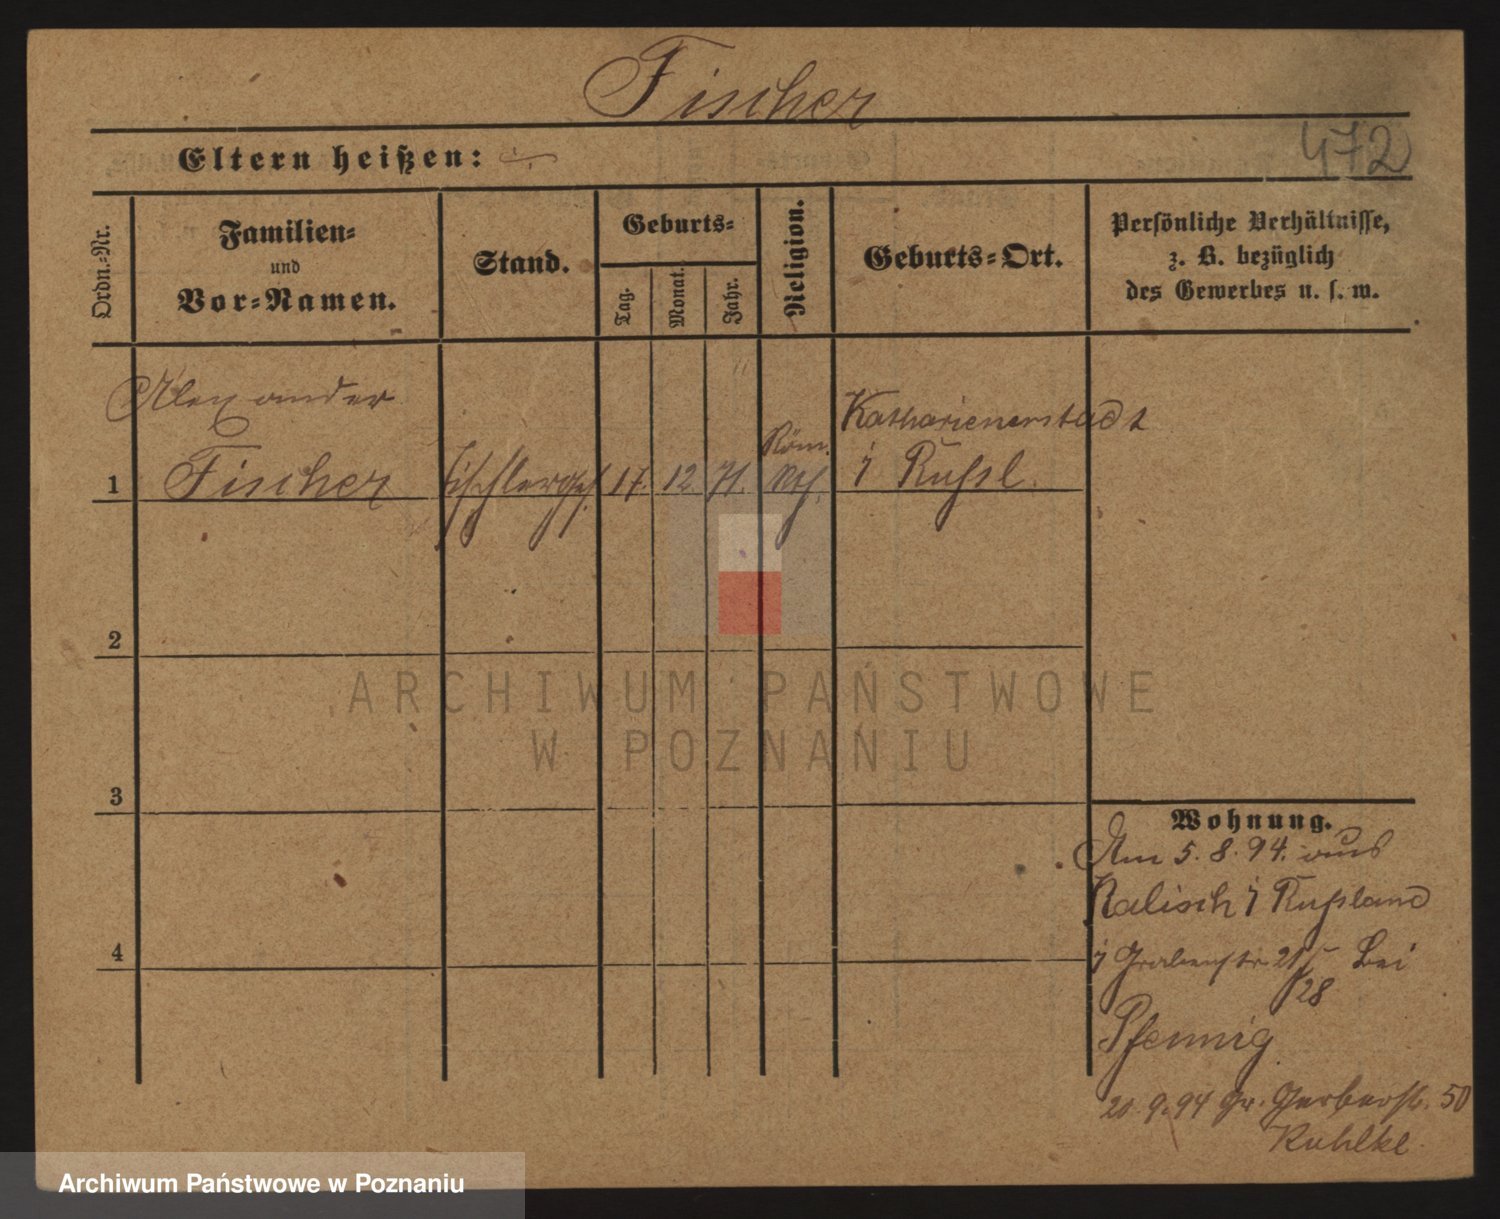 Fischer
472
Eltern heißen:
Ordn.-Nr.
Familien-
und
Vor-Namen.
Stand.
Geburts-
Tag.
Monat.
Jahr.
Religion.
Geburts-Ort.
Persönliche Verhältnisse,
z. B. bezüglich
des Gewerbes u. s. w.
Alexander
Fischer
Tischlerges.
17. 12 71.
Röm.
Kth.
Katharienenstadt
i Rußl.
1
2
3
4
ARCHIWUM PAŃSTWOWE
W POZNANIU
Wohnung.
Am 5. 8. 94. aus
Kalisch i Rußland
i Grabenstr. Bei
28
Pfennig
20. 9. 94 Gr. Gerberstr. 50
Kuhlke
Archiwum Państwowe w Poznaniu